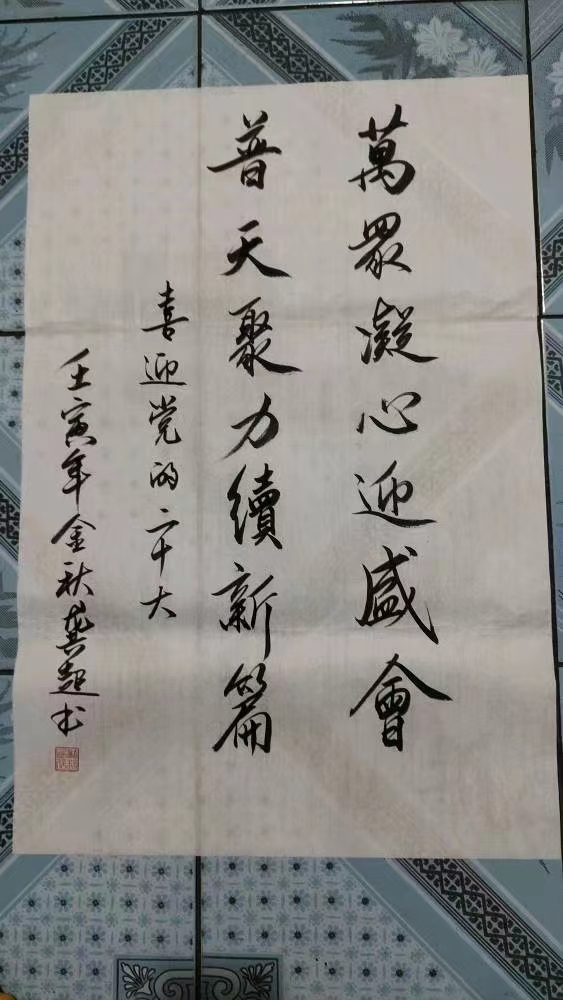 萬眾凝心迎盛會
普天聚力續新篇
喜迎党的二十大
壬寅年金秋龔超书